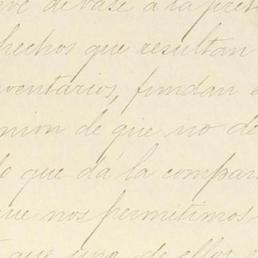 de base á la pret
hechos que resultan
ventarios, fundan
nion de que no de
que dá la compar
que nos permitimos
que uno de ellos